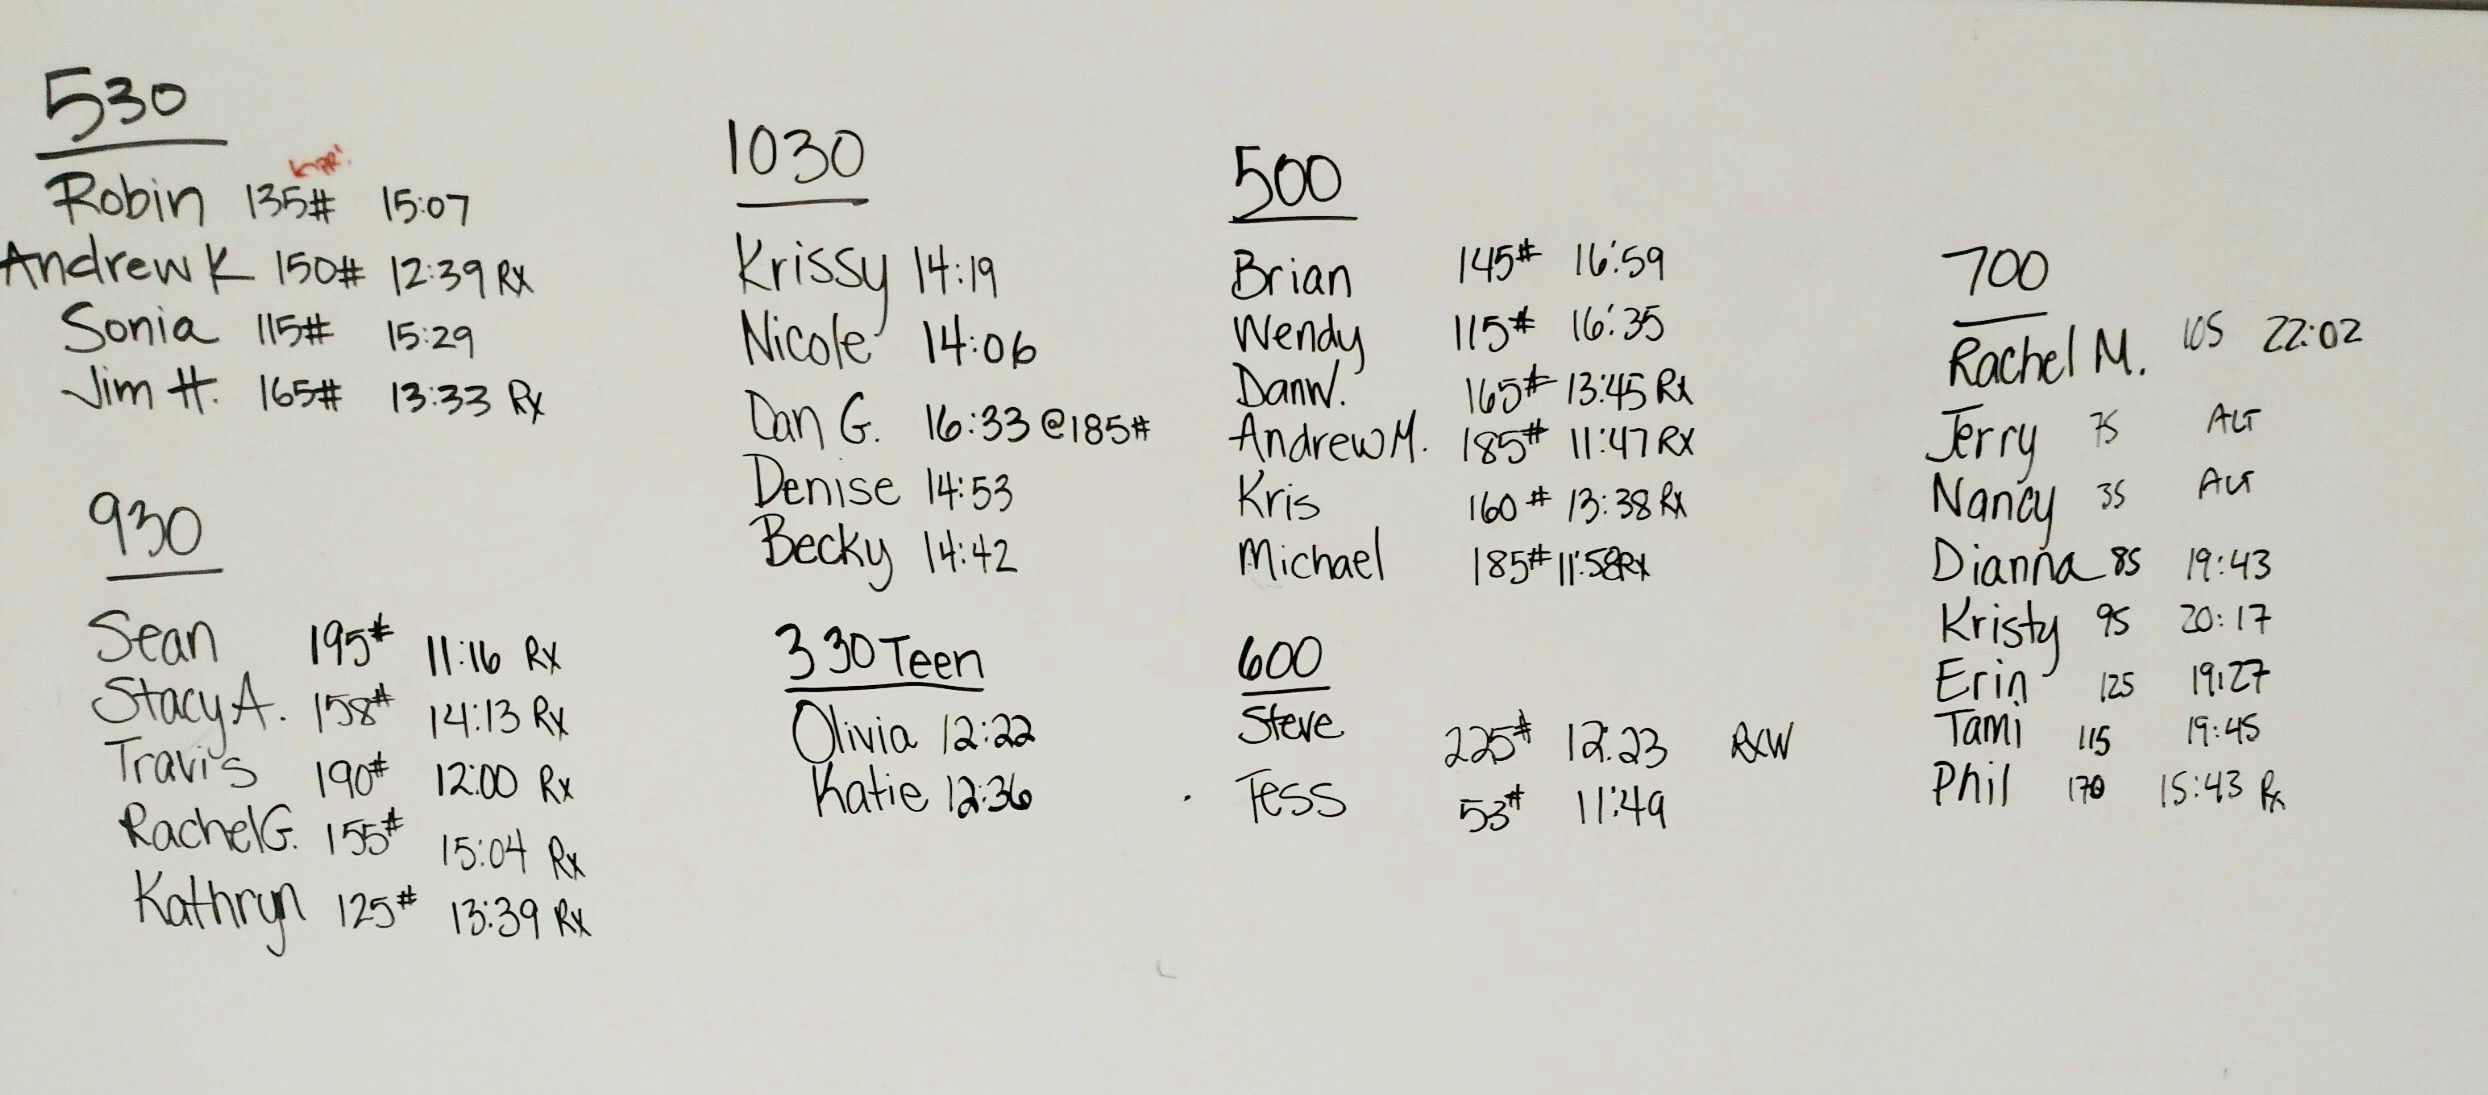 530
Robin 135# 15:07
Andrew K 150# 12:39 Rx
Sonia 115# 15:29
Jim H. 165# 13:33 Rx
930
Sean 195# 11:16 Rx
Stacy A. 158# 14:13 Rx
Travis 190# 12:00 Rx
Rachel G. 155# 15:04 Rx
Kathryn 125# 13:39 Rx
1030
Krissy 14:19
Nicole 14:06
Dan G. 16:33 @185#
Denise 14:53
Becky 14:42
330 Teen
Olivia 12:22
Katie 12:36
500
Brian 145# 16:59
Wendy 115# 16:35
Dan W. 165# 13:45 Rx
Andrew M. 185# 11:47 Rx
Kris 160# 13:38 Rx
Michael 185# 11:58 Rx
600
Steve 225# 12:23 RxW
Tess 53# 11:49
700
Rachel M. 105 22:02
Jerry 75 ALT
Nancy 35 ALT
Dianna 85 19:43
Kristy 95 20:17
Erin 125 19:27
Tami 115 19:45
Phil 170 15:43 Rx